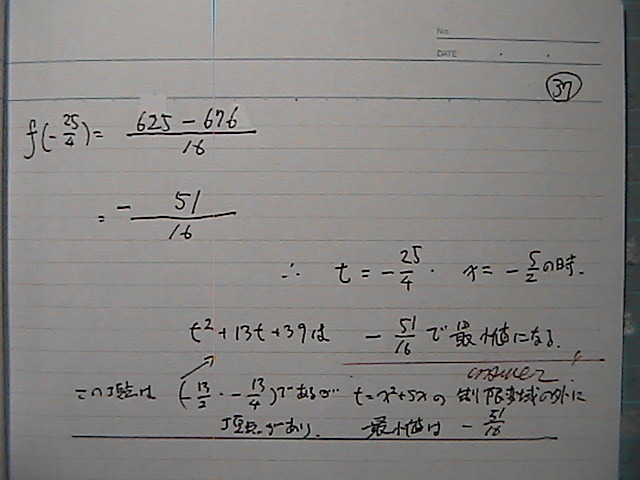 No.
DATE
37
f(-25/4) = 625 - 676 / 16
= - 51 / 16
∴ t = -25/4 . x = -5/2 の時.
t² + 13t + 39 は - 51/16 で最小値になる.
answer
この頂点は (-13/2 . -13/4) であるが… t = x² + 5x の制限変域の外に
頂点があり. 最小値は - 51/16